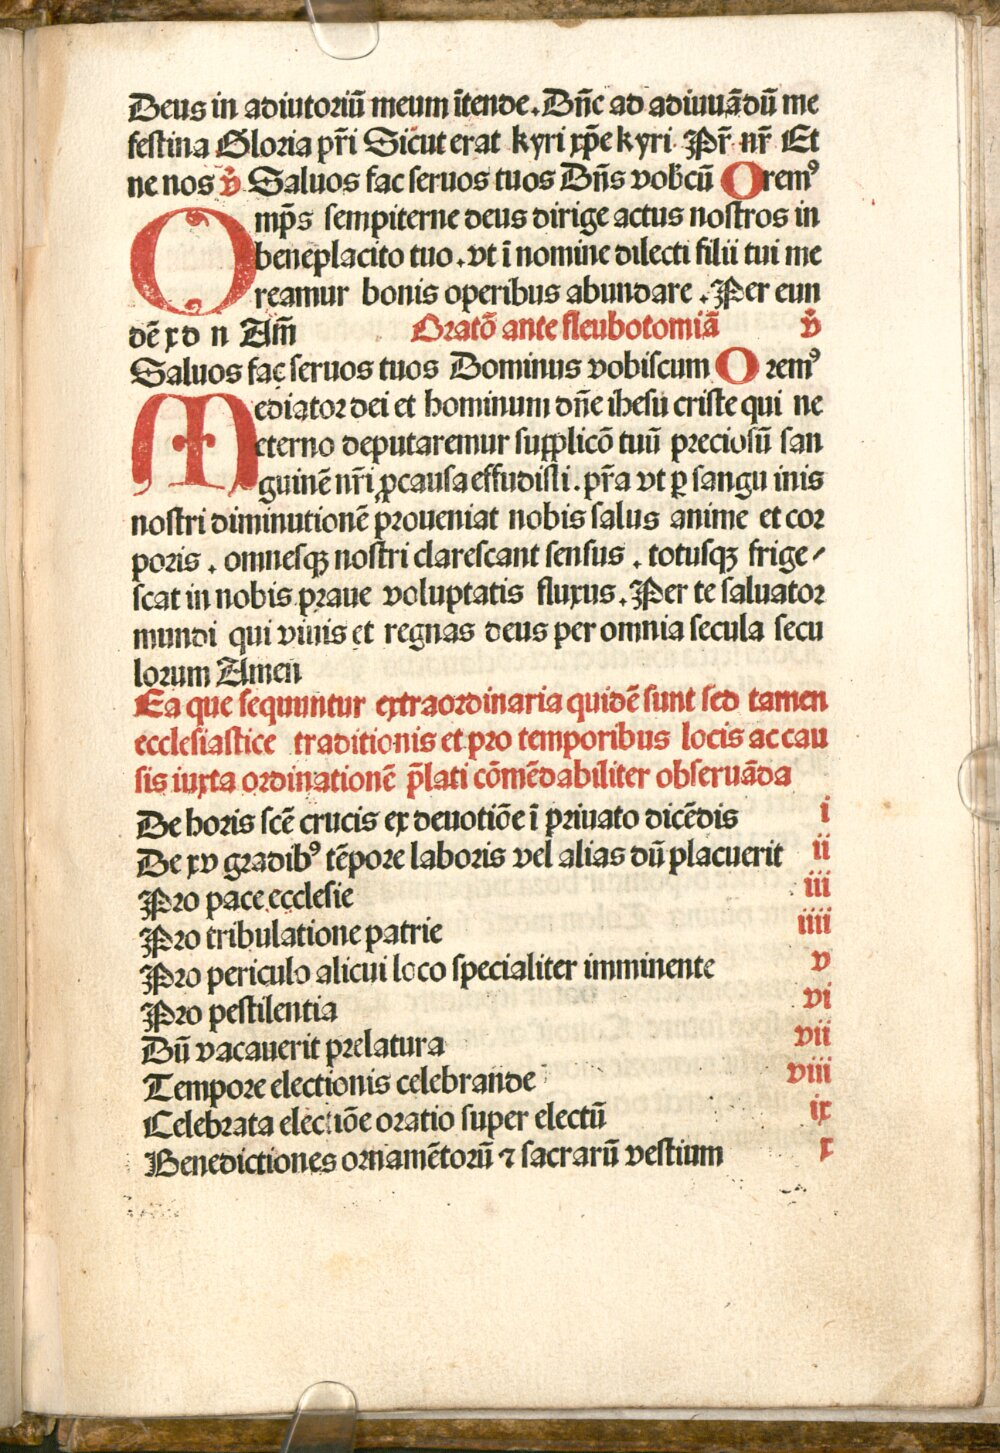 Deus in adiutoriū meum ītende. Dñe ad adiuuādū me
festina Gloria pr̄i Sicut erat kyri xp̄e kyri Pr̄ nr̄ Et
ne nos v̄ Saluos fac seruos tuos Dñs vobcū Oremꝰ
Omp̄s sempiterne deus dirige actus nostros in
beneplacito tuo. vt ī nomine dilecti filii tui me
reamur bonis operibus abundare. Per eun
dē xp n Am̄ Oratō ante fleubotomiā v̄
Saluos fac seruos tuos Dominus vobiscum Oremꝰ
Mediator dei et hominum dñe ihesu criste qui ne
eterno deputaremur supplicō tuū preciosū san
guinē nr̄i ꝓ causa effudisti. pr̄a vt ꝑ sangu inis
nostri diminutionē proueniat nobis salus anime et cor
poris. omnesqꝫ nostri clarescant sensus. totusqꝫ frige/
scat in nobis praue voluptatis fluxus. Per te saluator
mundi qui viuis et regnas deus per omnia secula secu
lorum Amen
Ea que sequuntur extraordinaria quidē sunt sed tamen
ecclesiastice traditionis et pro temporibus locis ac cau
sis iuxta ordinationē p̄lati cōmēdabiliter obseruāda
De horis scē crucis ex deuotiōe ī priuato dicēdis i
De xv gradibꝰ tēpore laboris vel alias dū placuerit ii
Pro pace ecclesie iii
Pro tribulatione patrie iiii
Pro periculo alicui loco specialiter imminente v
Pro pestilentia vi
Dū vacauerit prelatura vii
Tempore electionis celebrande viii
Celebrata electiōe oratio super electū ix
Benedictiones ornamētorū ⁊ sacrarū vestium x